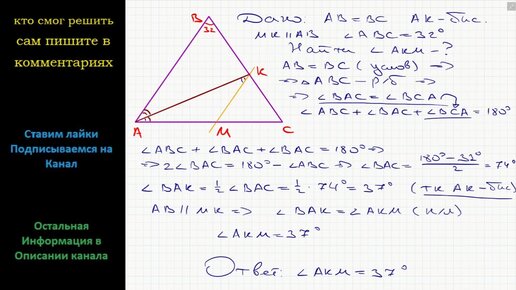 кто смог решить
сам пишите в
комментариях
Ставим лайки
Подписываемся на
Канал
Остальная
Информация в
Описании канала
B
32
K
A
M
C
Дано: AB=BC AK-бис.
MK∥AB ∠ABC=32°
Найти ∠AKM-?
AB=BC (услов) ⇒
⇒ △ABC-р/б ⇒
⇒ ∠BAC=∠BCA
∠ABC+∠BAC+∠BCA=180°
∠ABC+∠BAC+∠BAC=180° ⇒
⇒ 2∠BAC=180°-∠ABC ⇒ ∠BAC=(180°-32°)/2=74°
∠BAK=1/2∠BAC=1/2·74°=37° (тк AK-бис)
AB∥MK ⇒ ∠BAK=∠AKM (н/л)
∠AKM=37°
Ответ: ∠AKM=37°